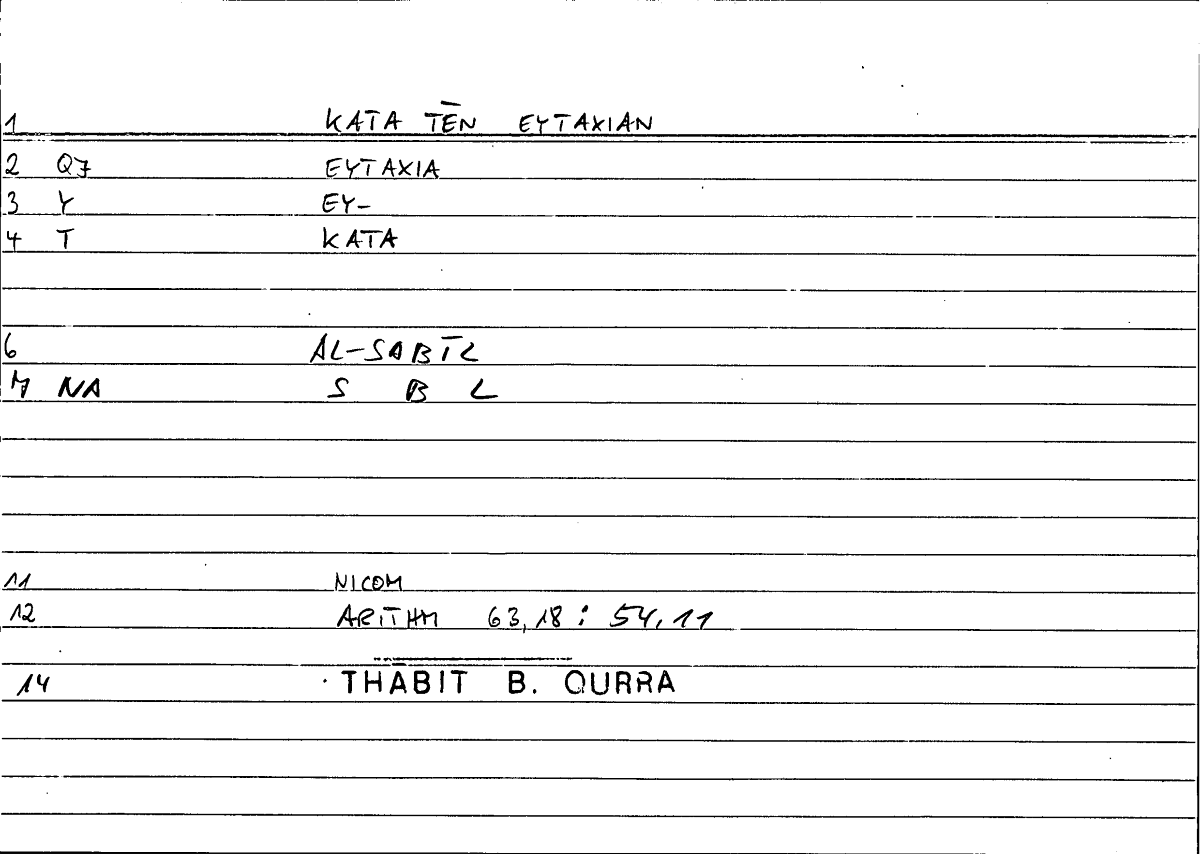 1 KATA TĒN EYTAXIAN
2 Q7 EYTAXIA
3 Y EY-
4 T KATA
6 AL-SABĪL
7 NA S B L
11 NICOM
12 ARITHM 63,18 : 54,11
14 THĀBIT B. QURRA